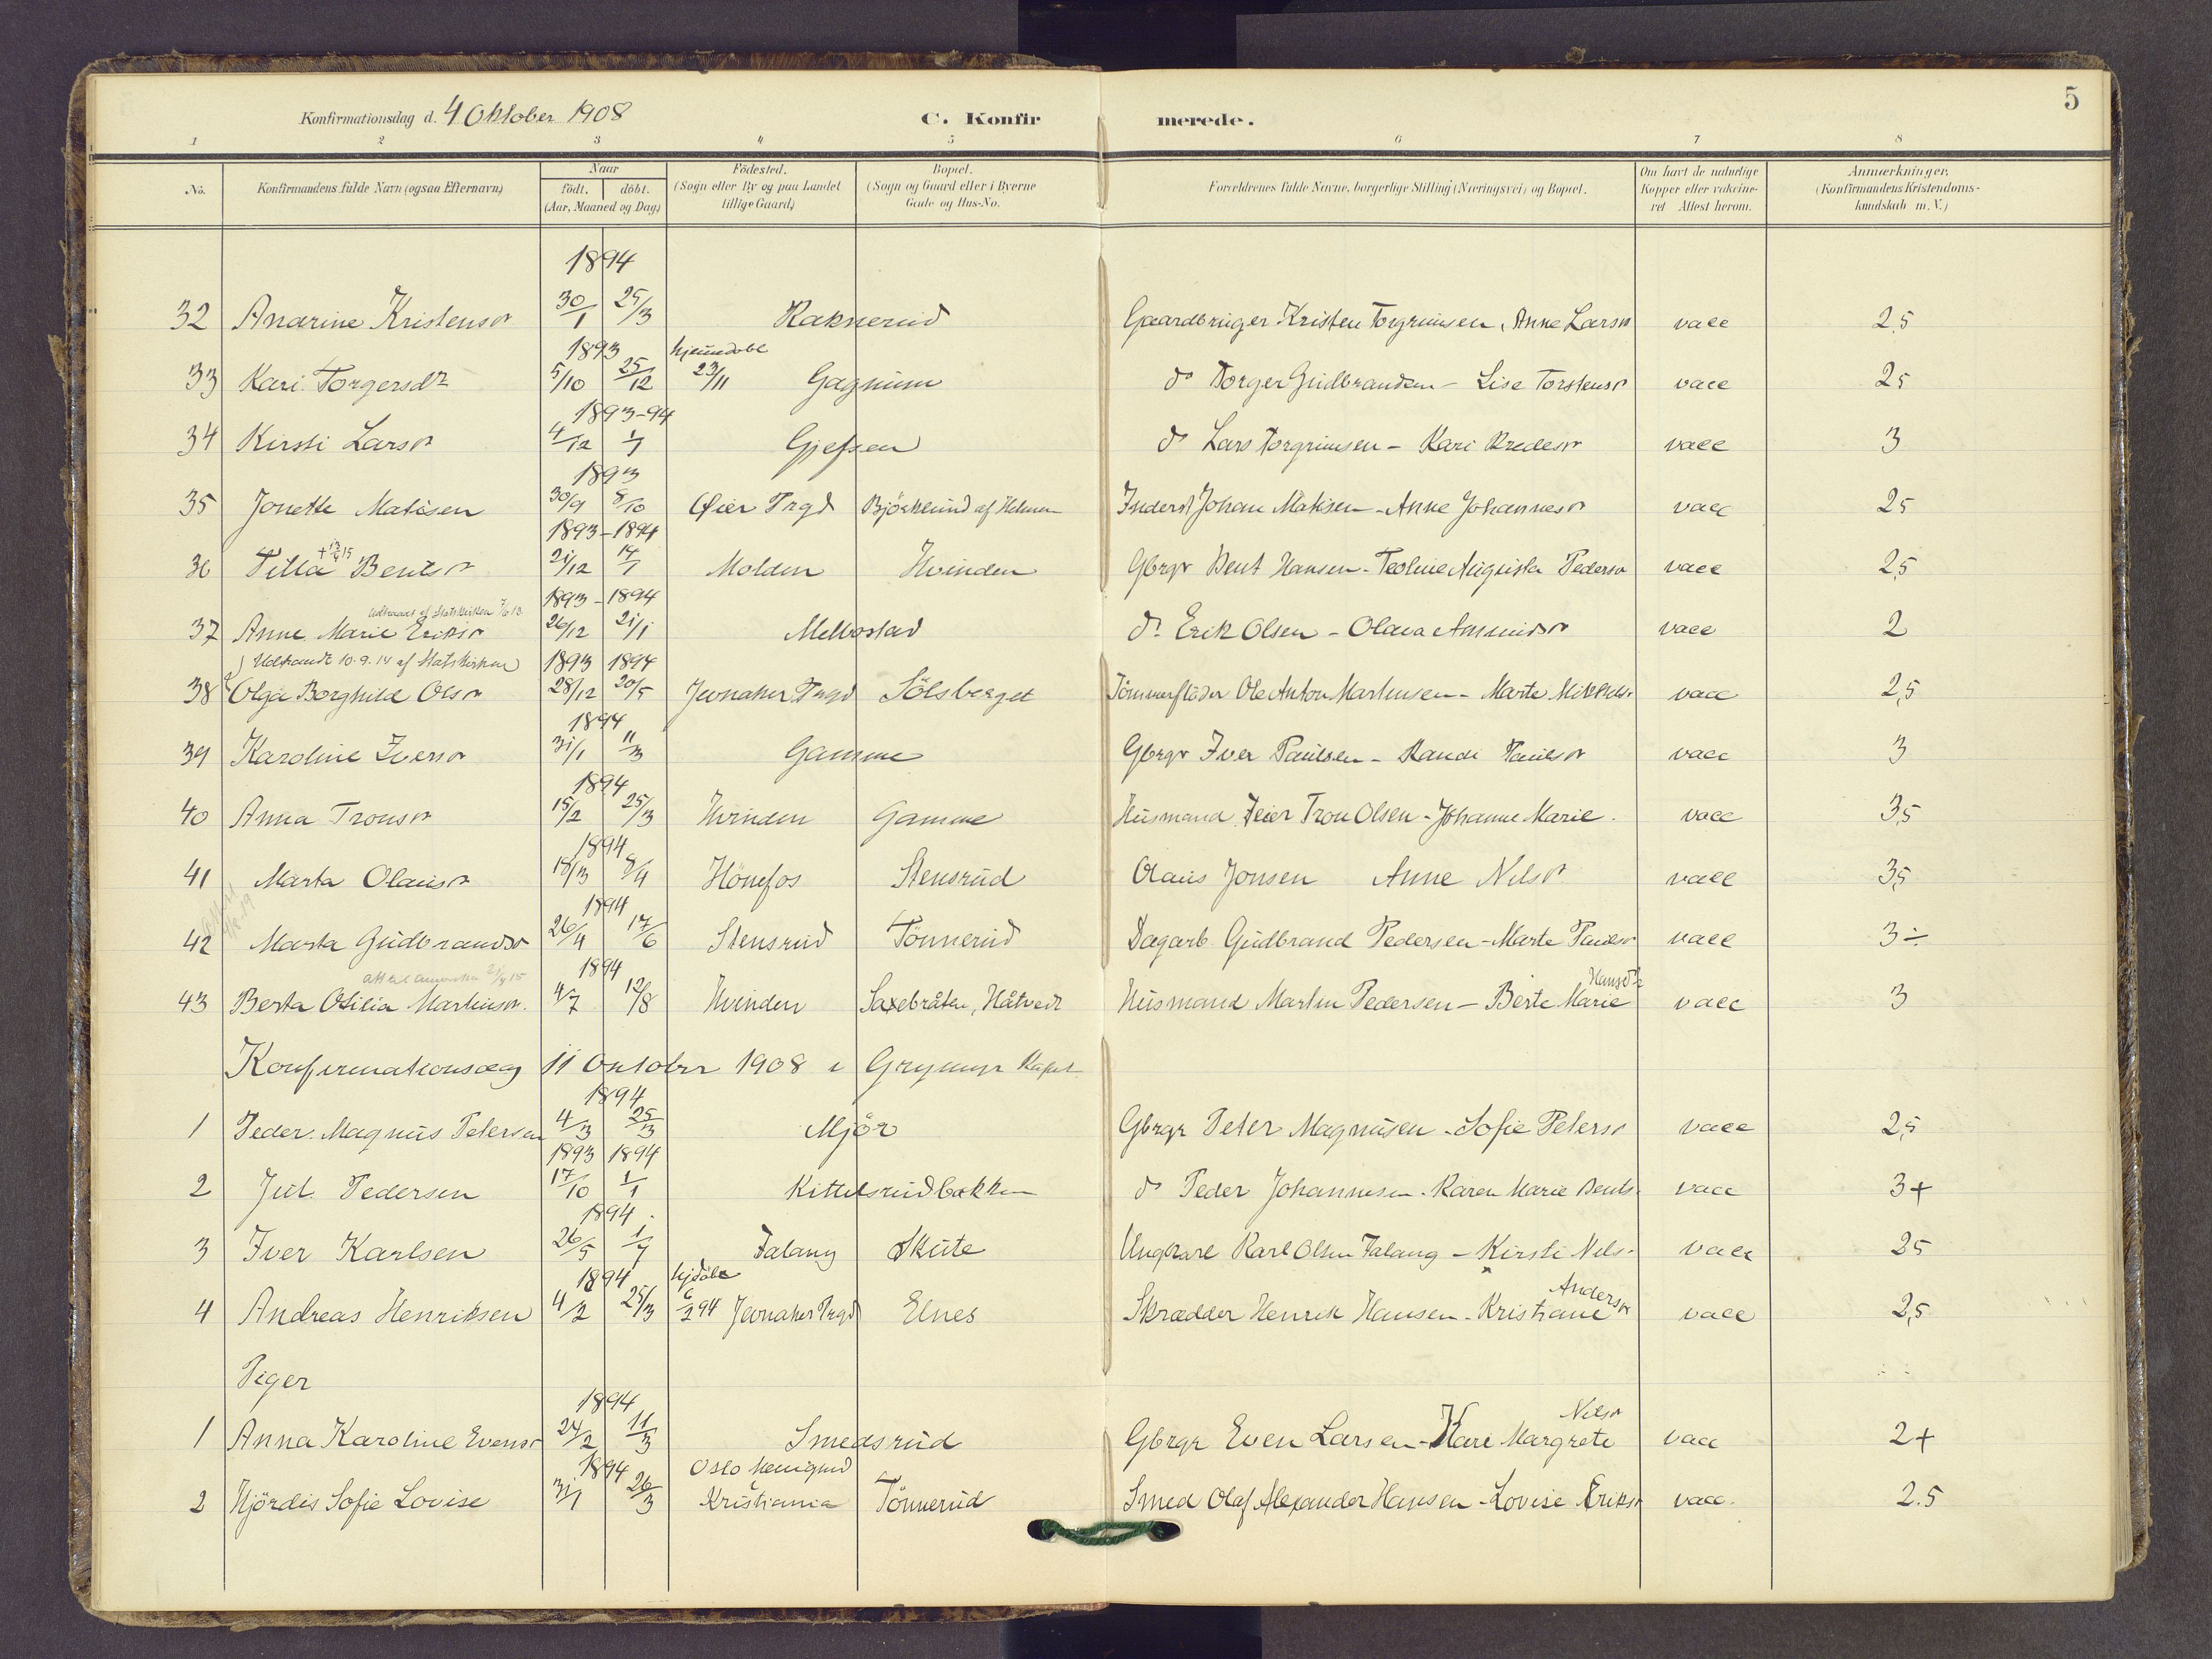 5
Konfirmationsdag d. 4 Oktober 1908
C. Konfirmerede.
1 2 3 4 5 6 7 8
No. Konfirmandens fulde Navn (ogsaa Efternavn) Naar födt. döbt. (Aar, Maaned og Dag) Födested. (Sogn eller By og paa Landet tillige Gaard) Bopæl. (Sogn og Gaard eller i Byerne Gade og Hus-No. Forældrenes fulde Navne, borgerlige Stilling (Næringsvei) og Bopæl. Om havt de naturlige Kopper eller vakcineret Attest herom. Anmærkninger. (Konfirmandens Kristendomskundskab m. V.)
1894
32 Anarine Kristensdr 30/1 25/3 Raknerud Gaardbruger Kristen Torgrimsen, Anne Larsdr vacc 2,5
1893 hjemdøbt
33 Kari Torgersdr 5/10 25/12 23/11 Gagnum do Torger Gudbrandsen - Lise Torstensdr vacc 25
1893-94
34 Kirsti Larsdr 4/12 1/1 Gjefsen do Lars Torgrimsen - Kari vacc 3
1893
35 Jonette Matisen 30/9 8/10 Øier Prgd Inderst Johan Matisen - Anne Johannesdr vacc 25
1893-1894
36 Tilla Bentsdr 21/12 14/1 Molden Hvinden Gbrgr Bent Hansen - Teoline Augusta Pedersdr vacc 2,5
Udtraadt af Statskirken
1893-1894
37 Anne Marie Eriksdr 26/12 21/1 Melbostad do Erik Olsen - Olava Amundsdr vacc 2
Udtraadt 10.9.14 af Statskirken 1893 1894
38 Olga Borghild Olsdr 28/12 20/5 Jevnaker Prgd Sölsberget Tömmerfløder Ole Anton Martinsen - Marte Mikkels. vacc 2,5
1894
39 Karoline Iversdr 31/1 11/3 Gamme Gbrgr Iver Paulsen - Randi Paulsdr vacc 3
1894
40 Anna Tronsdr 15/2 25/3 Hvinden Gamme Husmand Feier Tron Olsen - Johanne Marie. vacc 3,5
1894
41 Marta Olausdr 18/3 8/4 Hönefos Stensrud Olaus Jonsen Anne Nilsdr vacc 3,5
1894
42 Marta Gudbrandsdr 26/4 17/6 Stensrud Tönnerud Dagarb. Gudbrand Pedersen - Marte Paulsdr vacc 3÷
Att til Amerika 1894
Hansdr
43 Berta Otilia Martinsdr. 4/7 12/8 Hvinden Saxebråten, Håtvedt Husmand Martin Pedersen - Berte Marie vacc 3
Konfirmationsdag 11 Oktober 1908 i Grymyr Kapel
1894
1 Peder Magnus Petersen 4/3 25/3 Mjör Gbrgr Peter Magnusen - Sofie Petersdr vacc 2,5
1893 1894
2 Jul. Pedersen 17/10 1/1 Kittelsrudbakken do Peder Johannesen. Karen Marie Bents. vacc 3+
1894
3 Iver Karlsen 26/5 1/7 Falang Skute Ungkarl Karl Olsen Falang - Kirsti Nils. vacc 25
1894 hjdöbt Andersdr
4 Andreas Henriksen 4/2 25/3 6/2 94 Jevnaker Prgd Elnes Skrædder Henrik Hansen - Kristiane vacc 2,5
Piger
1894 Nilsdr
1 Anna Karoline Evensdr 24/2 11/3 Smedsrud Gbrgr Even Larsen - Kari Margrete vacc 2+
1894 Oslo Menighed
2 Hjördis Sofie Lovise 31/1 26/3 Kristiania Tönnerud Smed Olaf Alexander Hansen - Lovise Eriksdr vacc. 2.5